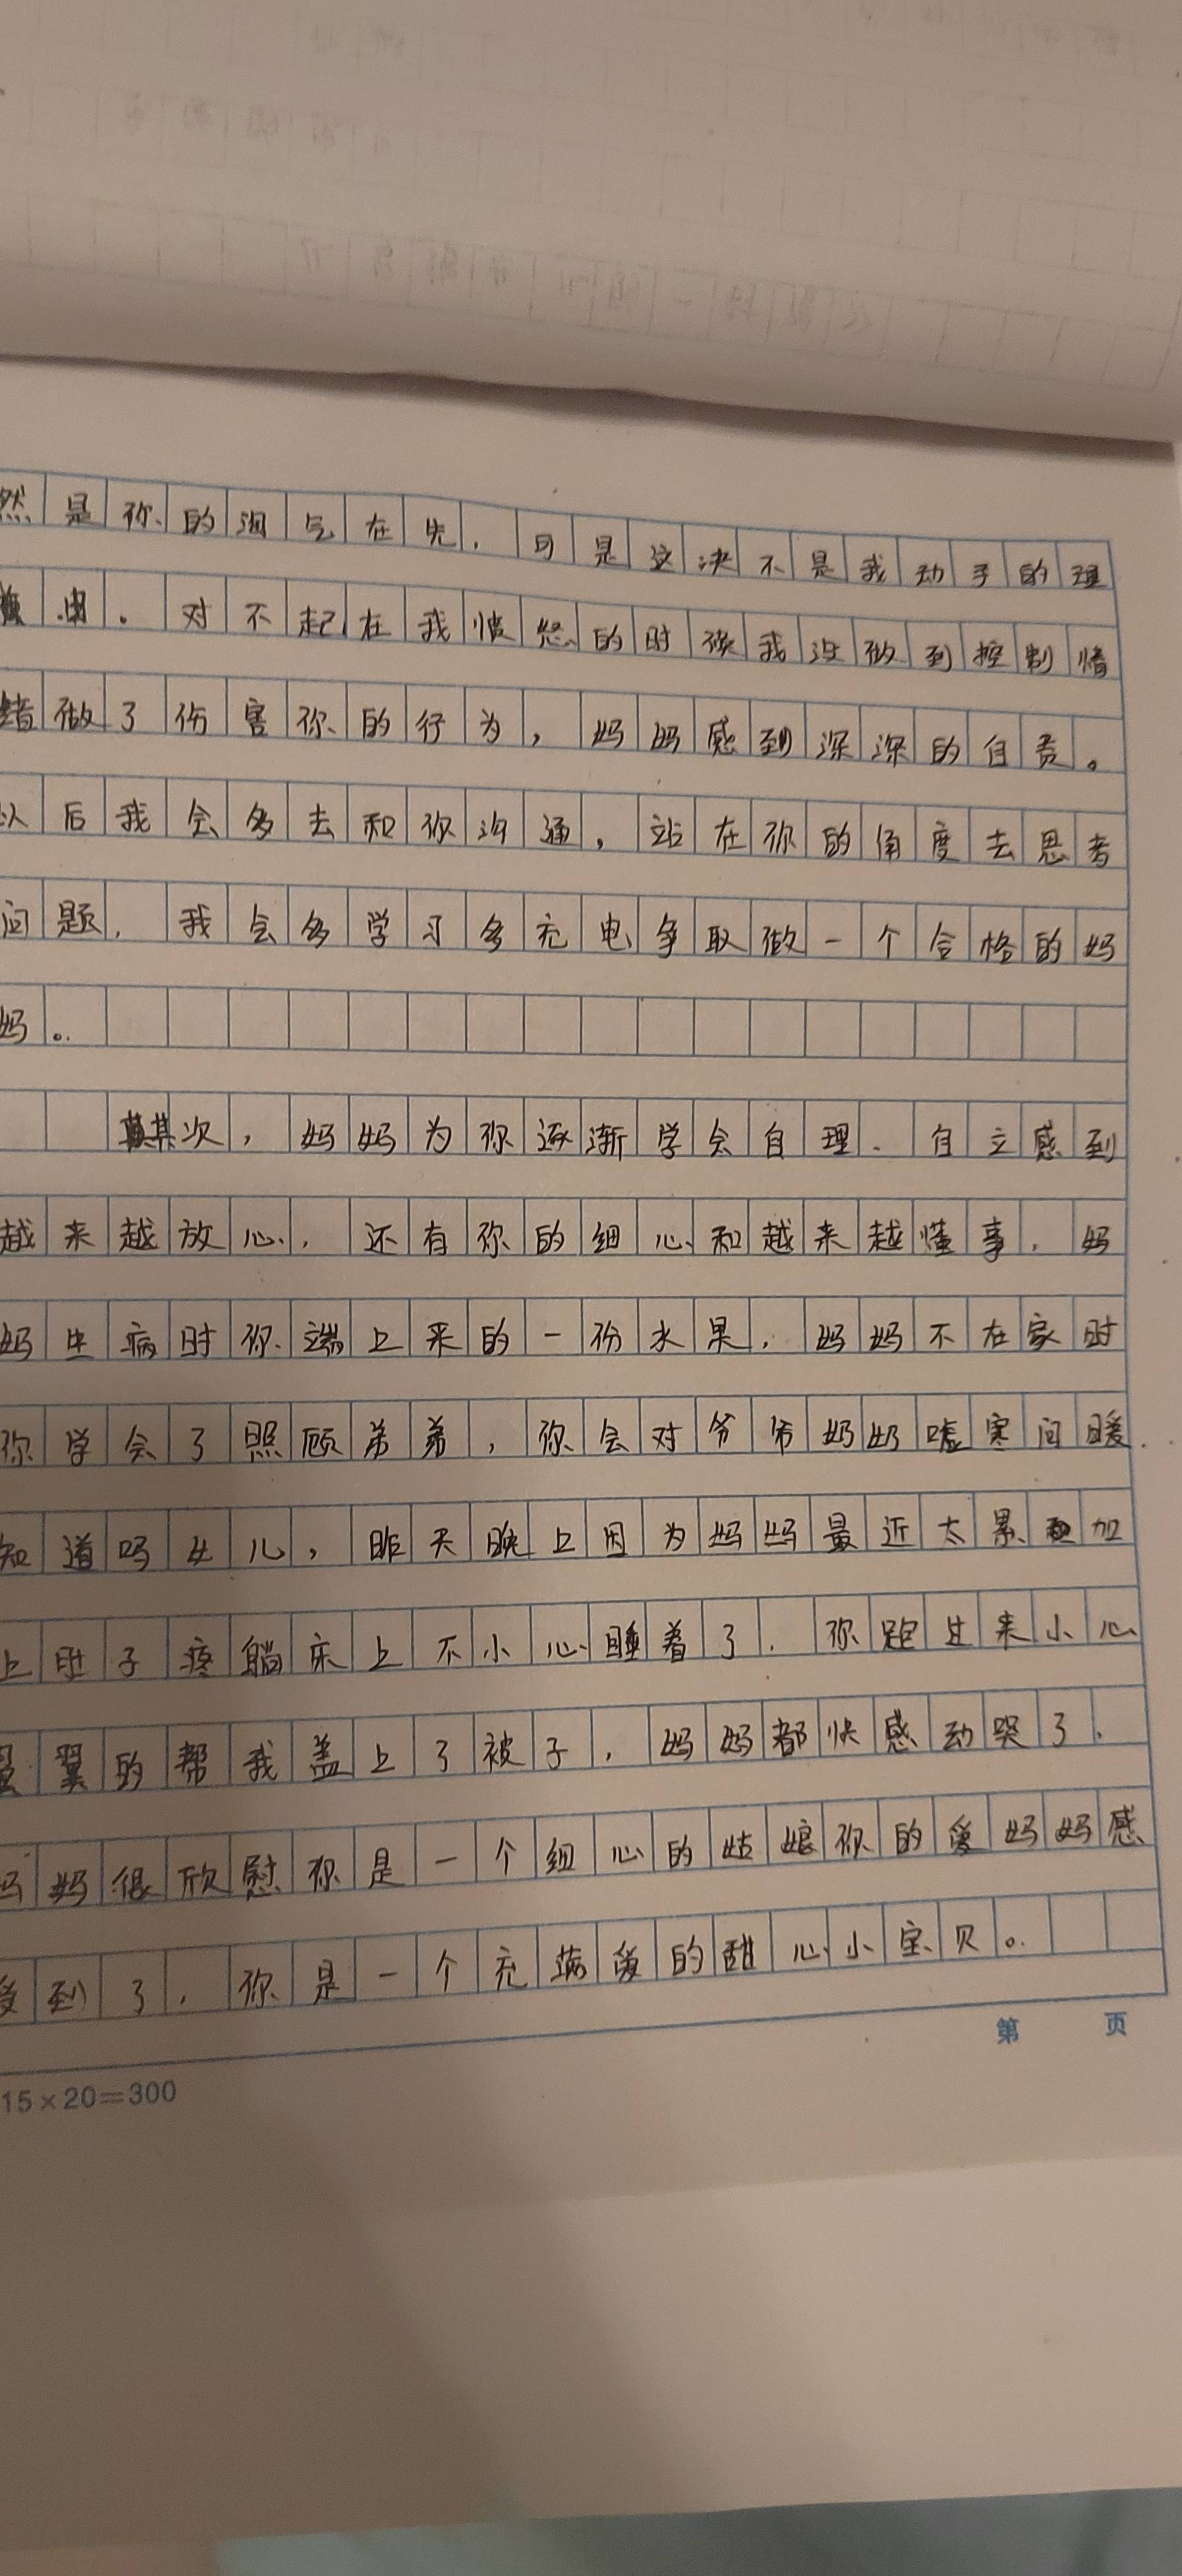 然是你的淘气在先，可是这决不是我动手的理
由。对不起在我愤怒的时候我没做到控制情
绪做了伤害你的行为，妈妈感到深深的自责。
以后我会多去和你沟通，站在你的角度去思考
问题，我会多学习多充电争取做一个合格的妈
妈。
其次，妈妈为你逐渐学会自理、自立感到
越来越放心，还有你的细心和越来越懂事，妈
妈生病时你端上来的一份水果，妈妈不在家时
你学会了照顾弟弟，你会对爷爷奶奶嘘寒问暖，
知道吗女儿，昨天晚上因为妈妈最近太累加
上肚子疼躺床上不小心睡着了，你跑过来小心
翼翼的帮我盖上了被子，妈妈都快感动哭了，
妈妈很欣慰你是一个细心的姑娘你的爱妈妈感
受到了，你是一个充满爱的甜心小宝贝。
第 页
15×20=300